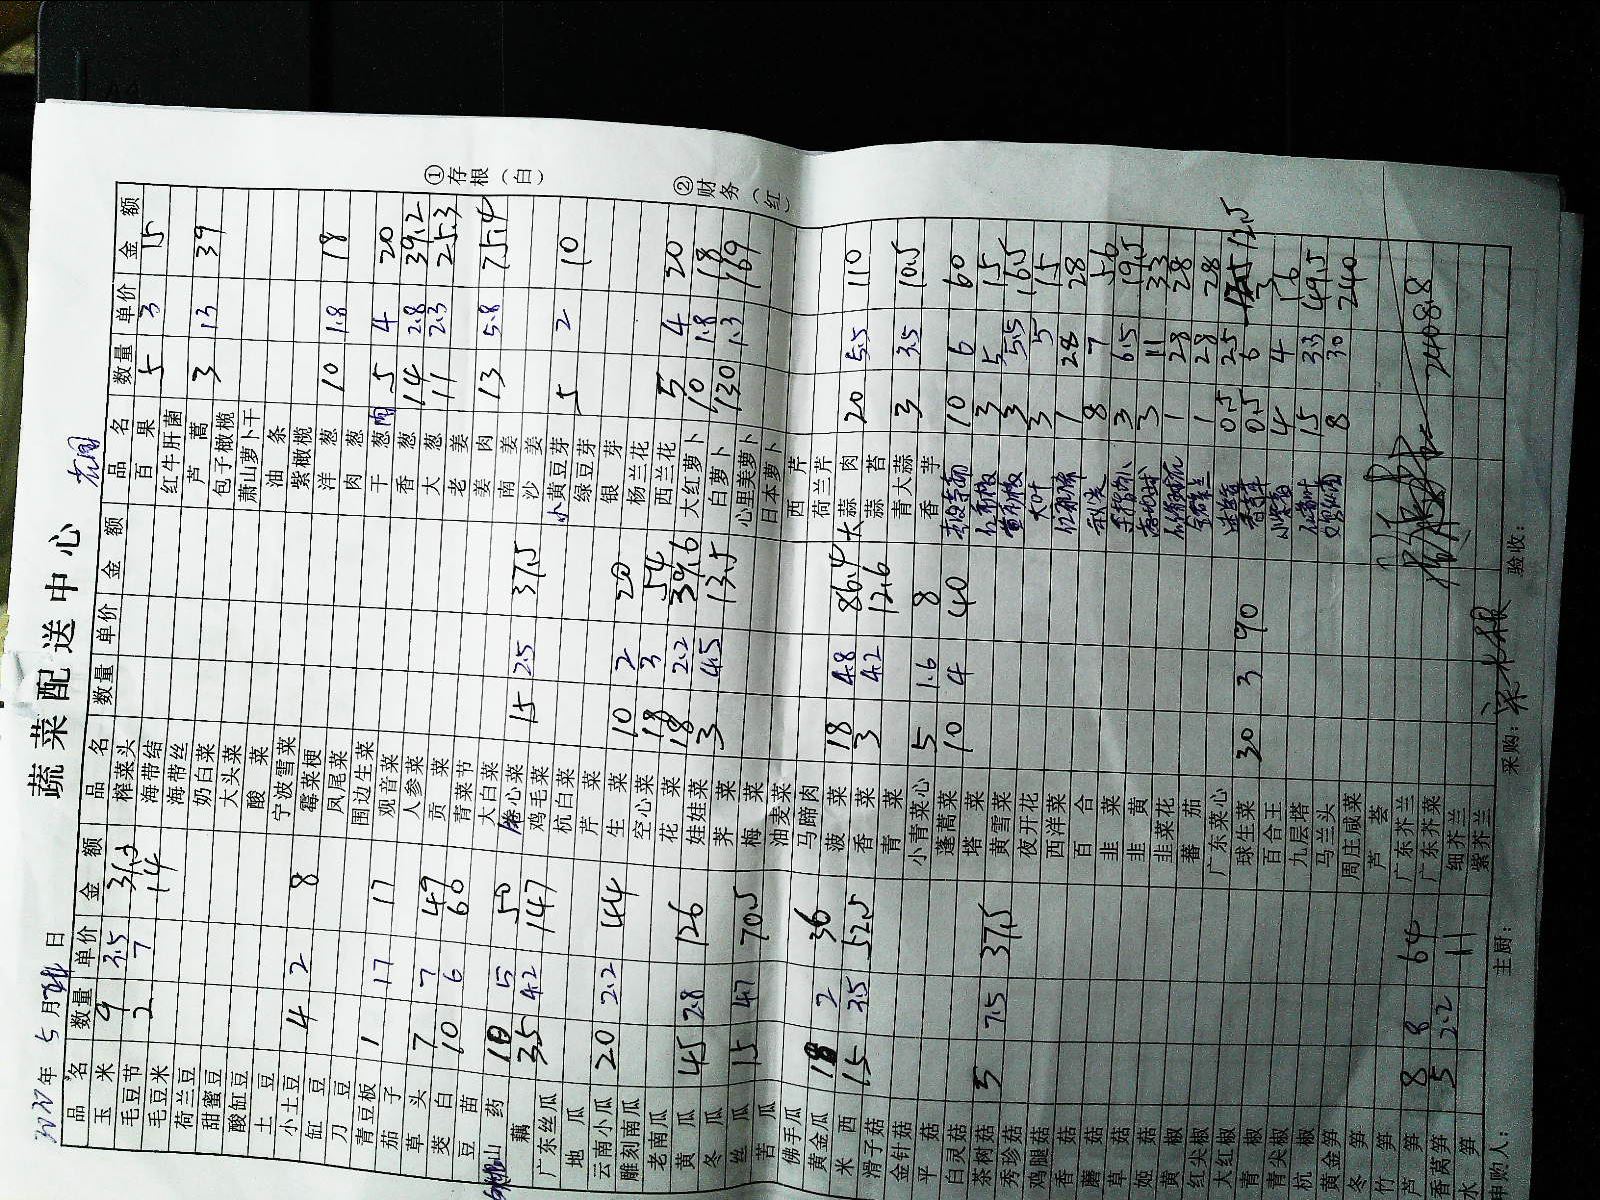 蔬菜配送中心
年 5 月 日
品名 数量 单价 金额
玉米 9 3.5 31.5
毛豆节 2 7 14
毛豆米
荷兰豆
甜蜜豆
酸缸豆
土豆
小土豆 4 2 8
缸豆
刀豆
青豆板 1 17 17
茄子
草头 7 7 49
茭白 10 6 60
豆苗
山药 10 5 50
藕 35 4.2 147
广东丝瓜
地瓜
云南小瓜 20 2.2 44
雕刻南瓜
老南瓜
黄瓜 45 2.8 126
冬瓜
丝瓜 15 4.7 70.5
苦瓜
佛手瓜
黄金瓜 18 2 36
米西 15 3.5 52.5
滑子菇
金针菇
平菇
白灵菇
茶树菇 5 7.5 37.5
秀珍菇
鸡腿菇
香菇
蘑菇
草菇
姬菇
黄椒
红尖椒
大红椒
青椒
青尖椒
杭椒
黄金笋
冬笋
竹笋
芦笋 8 8 64
香莴笋 5 2.2 11
水笋
品名 数量 单价 金额
榨菜头
海带结
海带丝
奶白菜
大头菜
酸菜
宁波雪菜
霉菜梗
凤尾菜
围边生菜
观音菜
人参菜
贡菜
青菜节
大白菜
卷心菜 15 2.5 37.5
鸡毛菜
杭白菜
芹菜
生菜 10 2 20
空心菜 18 3 54
花菜 18 2.2 39.6
娃娃菜 3 4.5 13.5
荠菜
梅菜
油麦菜
马蹄肉
菠菜 18 4.8 86.4
香菜 3 4.2 12.6
青菜
小青菜心 5 1.6 8
蓬蒿菜 10 4 40
塔菜
黄雪菜
夜开花
西洋菜
百合
韭菜
韭黄
韭菜花
蕃茄
广东菜心
球生菜 30 3 90
百合王
九层塔
马兰头
周庄咸菜
芦荟
广东芥兰
广东芥菜
细芥兰
紫芥兰
品名 数量 单价 金额
百果 5 3 15
红牛肝菌
芦蒿 3 13 39
包子橄榄
萧山萝卜干
油条
紫橄榄
洋葱 10 1.8 18
肉葱
干葱 5 4 20
香葱 14 2.8 39.2
大葱 11 2.3 25.3
老姜
姜肉 13 5.8 75.4
南姜
沙姜
小黄豆芽 5 2 10
绿豆芽
银芽
杨兰花
西兰花 5 4 20
大红萝卜 10 1.8 18
白萝卜 130 1.3 169
心里美萝卜
日本萝卜
西芹
荷兰芹
大蒜肉 20 5.5 110
蒜苔
青大蒜 3 3.5 10.5
香芋
10 6 60
红 3 5 15
黄 3 5.5 16.5
大叶 3 5 15
1 28 28
8 7 56
3 6.5 19.5
3 11 33
1 28 28
1 28 28
0.5 25 12.5
0.5 6 3
4 4 16
15 3.3 49.5
8 30 240
2408.8
①存根（白）
②财务（红）
申购人： 主厨： 采购： 验收：